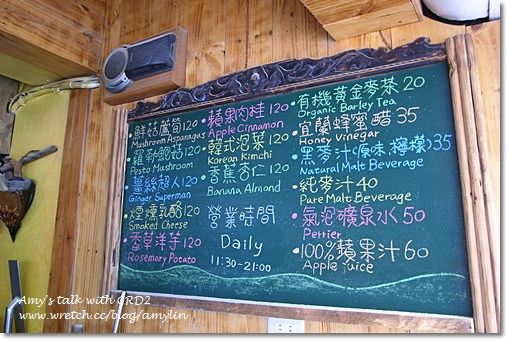 鮮菇蘆筍120
Mushroom Asparagus
羅勒鮑菇120
Pesto Mushroom
薑絲超人120
Ginger Superman
煙燻乳酪120
Smoked Cheese
香草洋芋120
Rosemary Potato
蘋果肉桂120
Apple Cinnamon
韓式泡菜120
Korean Kimchi
香蕉杏仁120
Banana Almond
營業時間
Daily
11:30-21:00
有機黃金麥茶20
Organic Barley Tea
宜蘭蜂蜜醋35
Honey Vinegar
黑麥汁(原味.檸檬)35
Natural Malt Beverage
純麥汁40
Pure Malt Beverage
氣泡礦泉水50
Perrier
100%蘋果汁60
Apple juice
Amy's talk with CRD2
www.wretch.cc/blog/amylin